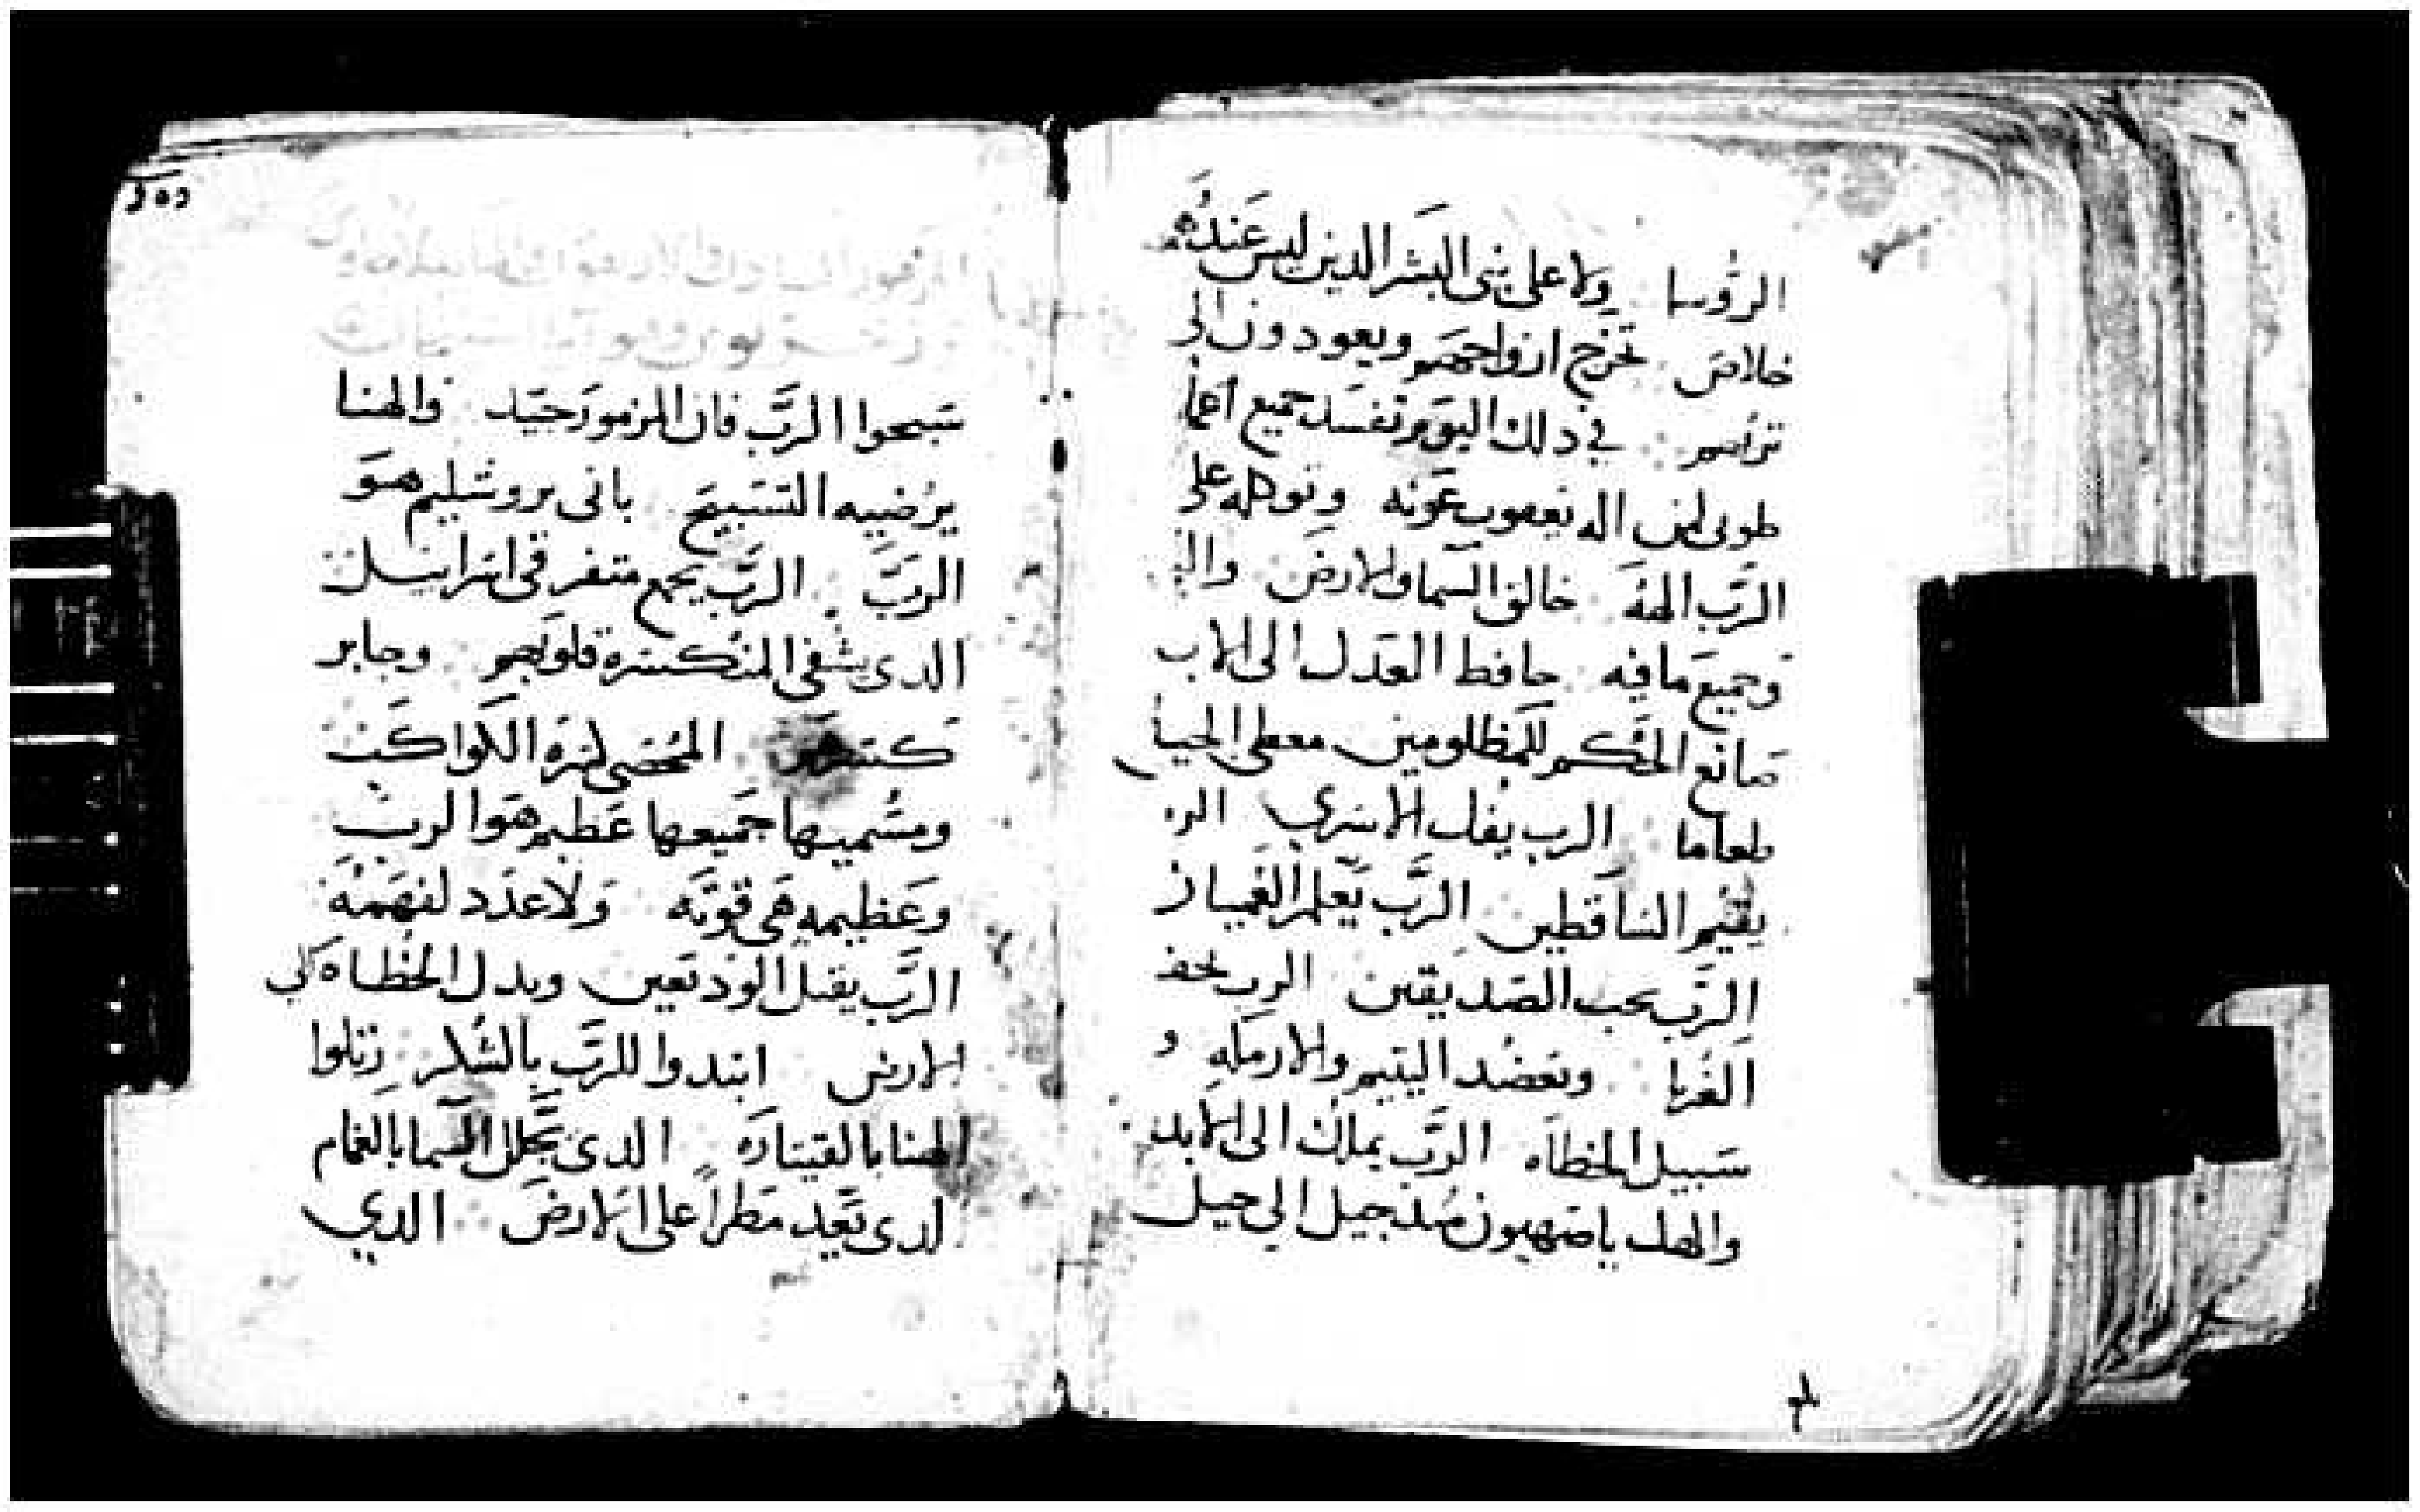 الرؤسا ولا على بني البشر الدين ليس عنده
خلاص تخرج ارواحهم ويعودون الي
ترابهم في دلك اليوم تفسد جميع
طوبى لمن اله يعقوب عونه وتوكله على
الرب الهه خالق السما والارض
وجميع ما فيه حافظ العدل الى الابد
صانع الحكم للمظلومين معطي الجياع
طعاما الرب يفك الاسري الرب
يقيم الساقطين الرب يعلم العميان
الرب يحب الصديقين الرب يحفظ
الغربا ويعضد اليتيم والارمله و
سبيل الخطاه الرب يملك الى الابد
والهك يا صهيون مند جيل الي جيل
سبحوا الرب فان المزمور جيد والهنا
يرضيه التسبيح باني يروشليم هو
الرب الرب يجمع متفرقى اسراييل
الدى يشفي المنكسره قلوبهم وجابر
كسرهم المحصي لكثرة الكواكب
ومسميها جميعها عظيم هو الرب
وعظيمه هي قوته ولا عدد لفهمه
الرب يقبل الودعين ويدل الخطاه الي
الارض ابتدوا للرب بالشكر رتلوا
الهنا بالقيتاره الدى يجلل السما بالغمام
الدى يعد مطراً على الارض الدي